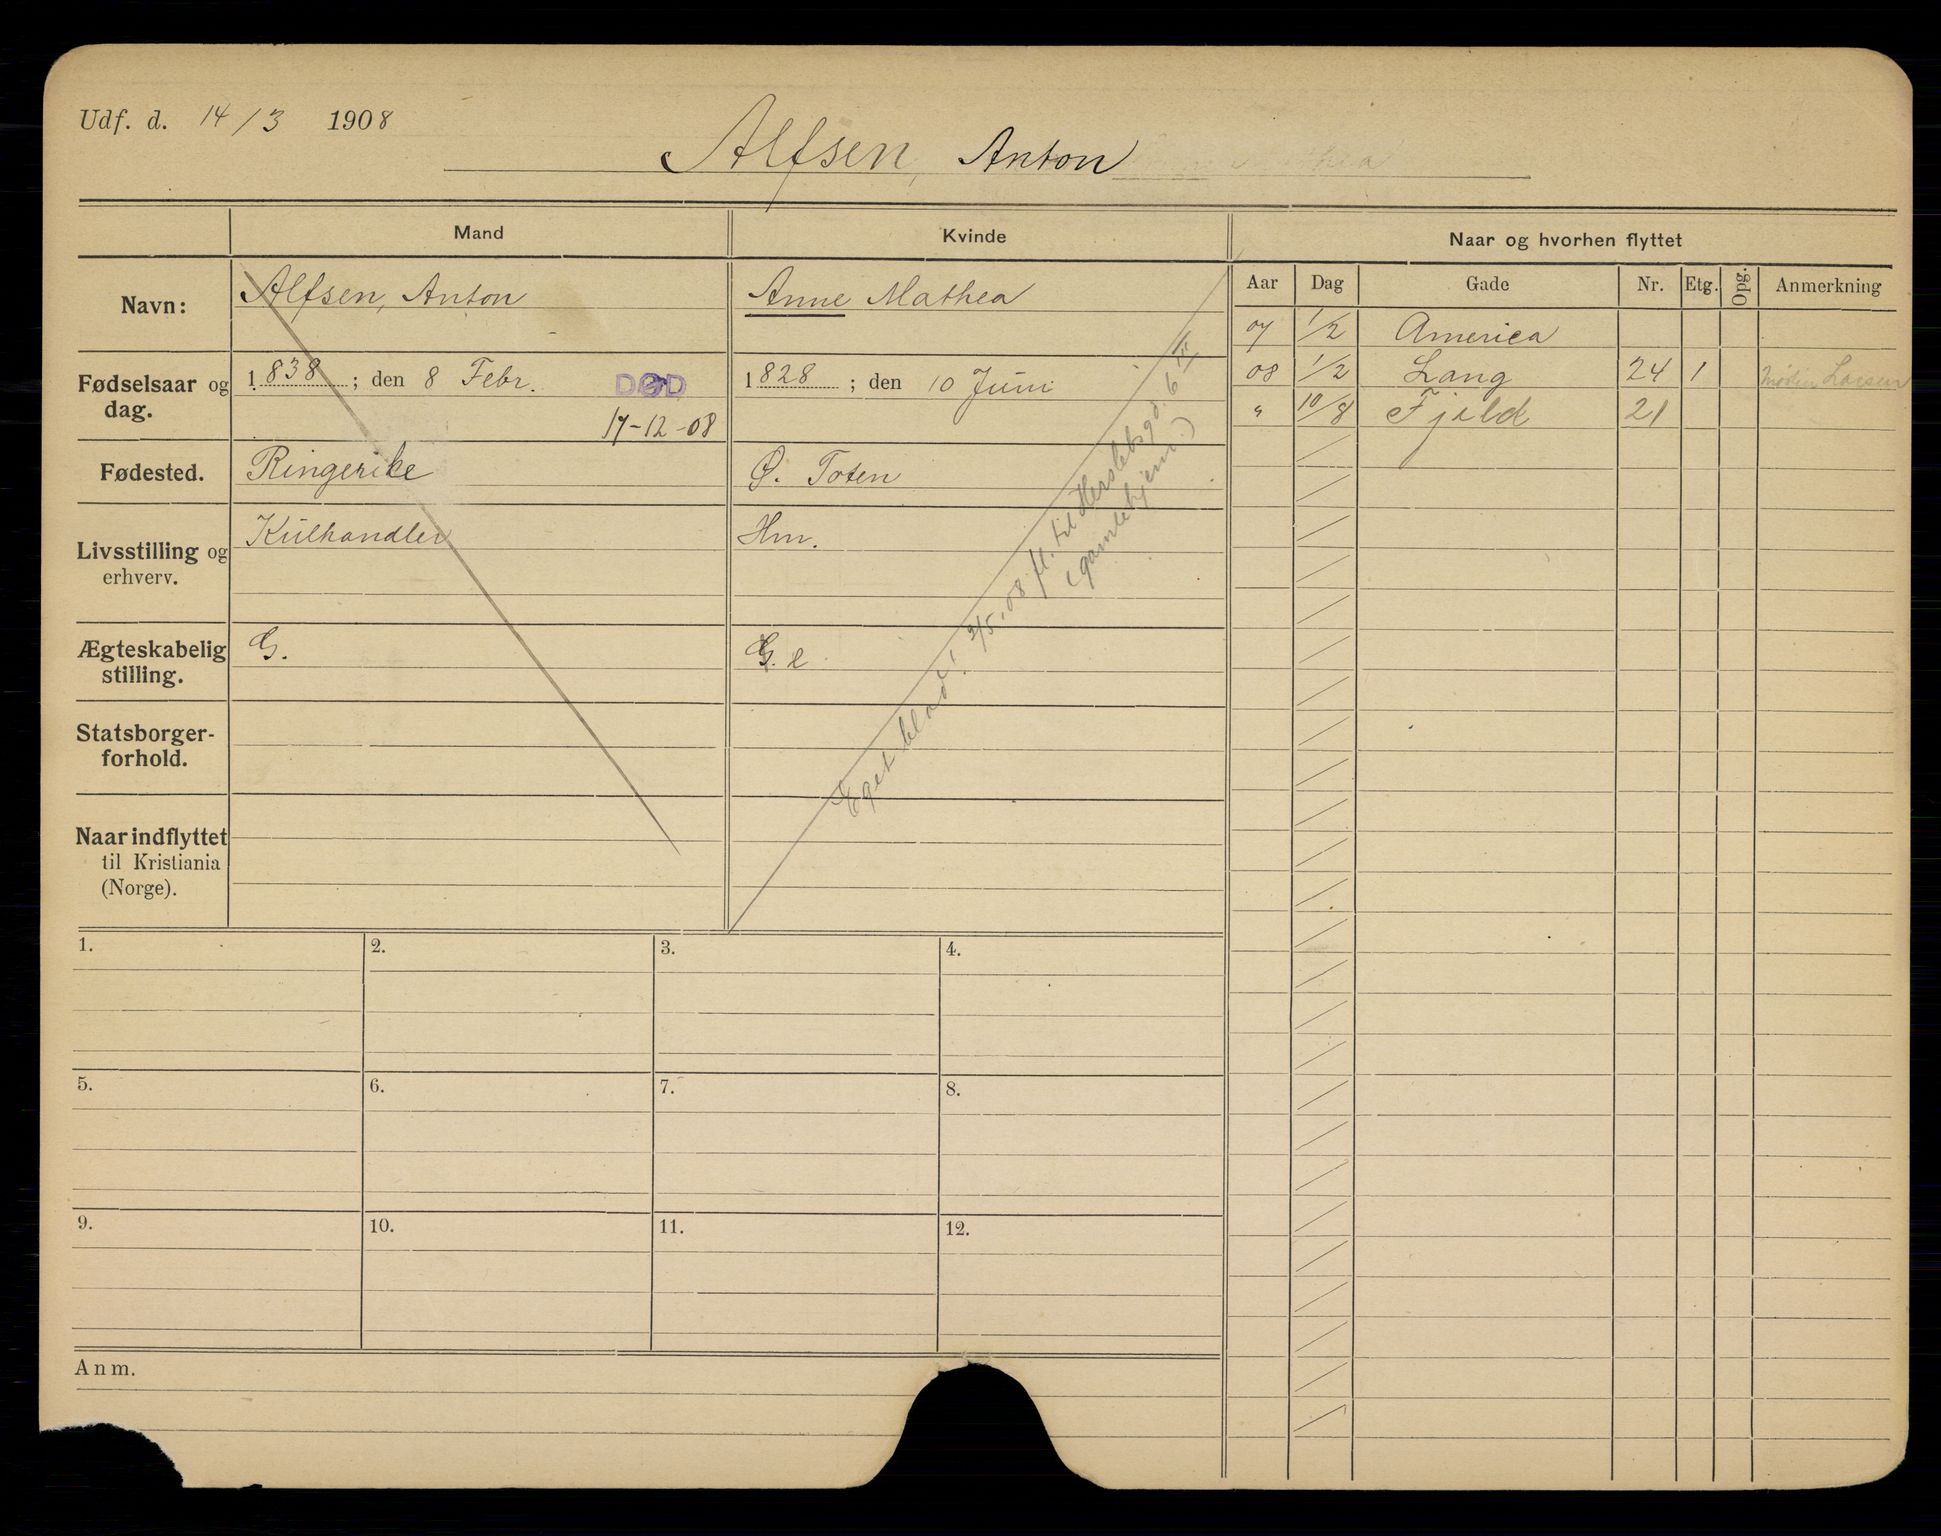 Udf. d. 14/3 1908
Alfsen, Anton
Mand
Kvinde
Naar og hvorhen flyttet
Navn:
Alfsen, Anton
Anne Mathea
Fødselsaar og dag.
1838; den 8 Febr.
DØD
17-12-08
1828; den 10 Juni
Fødested.
Ringerike
Ø. Toten
Livsstilling og erhverv.
Kulhandler
Hm.
Ægteskabelig stilling.
G.
G. e
Statsborger-
forhold.
Naar indflyttet
til Kristiania
(Norge).
Eget blad! 2/5.08 fl. til Herslebsgd. 6 II
(gamlehjem.)
Aar Dag Gade Nr. Etg. Opg. Anmerkning
07 1/2 America
08 1/2 Lang 24 1 Larsen
" 10/8 Fjeld 21
1. 2. 3. 4.
5. 6. 7. 8.
9. 10. 11. 12.
Anm.